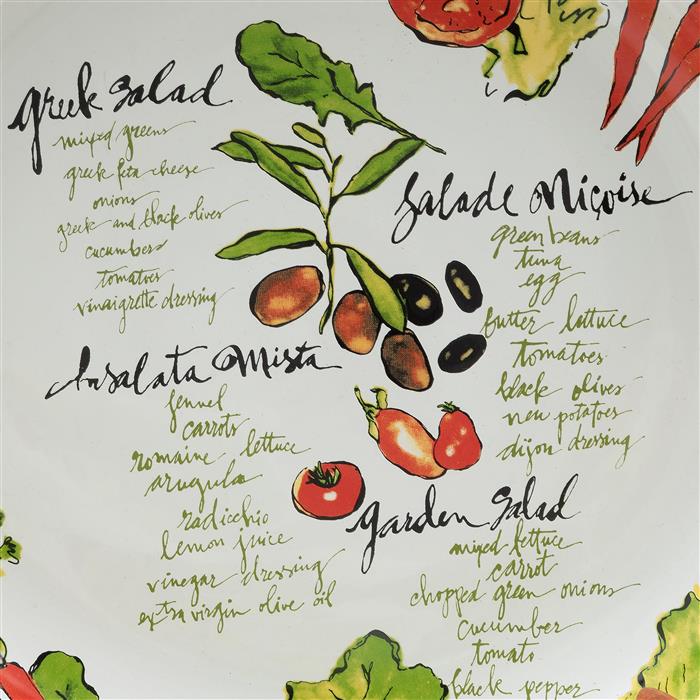 greek salad
mixed greens
greek feta cheese
onions
greek and black olives
cucumbers
tomatoes
vinaigrette dressing
Salade Niçoise
green beans
tuna
egg
butter lettuce
tomatoes
black olives
new potatoes
dijon dressing
Insalata Mista
fennel
carrots
romaine lettuce
arugula
radicchio
lemon juice
vinegar dressing
extra virgin olive oil
garden salad
mixed lettuce
carrot
chopped green onions
cucumber
tomato
black pepper